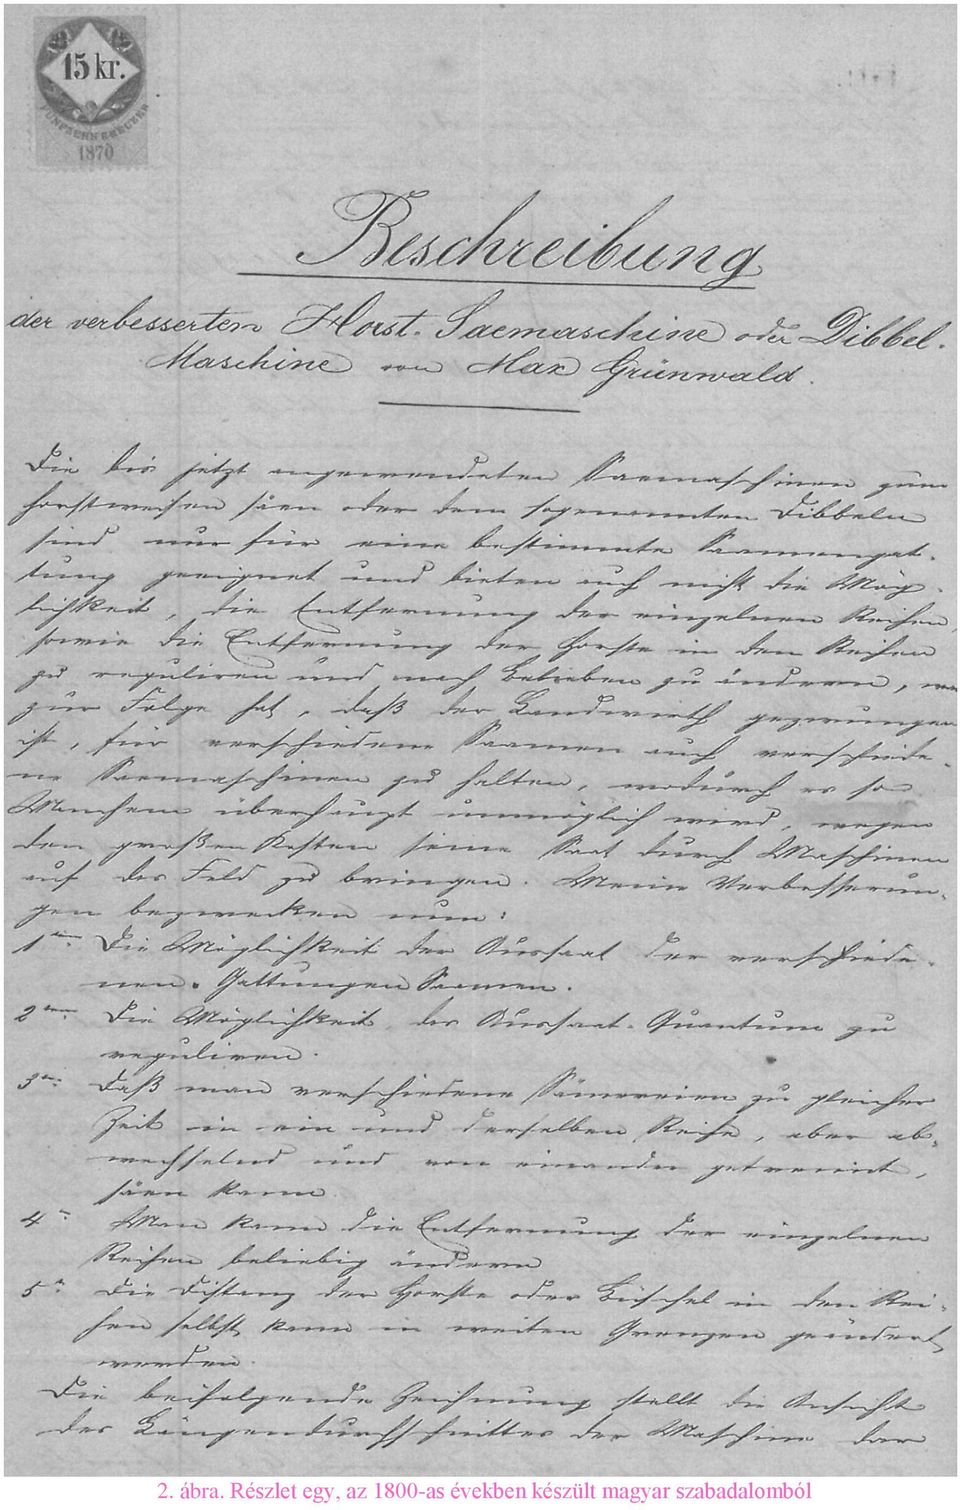 15 kr.
FÜNFZEHN KREUZER
1870
Beschreibung
der verbesserten Horst-Saemaschine oder Dibbel-
Maschine von Max Grünwald.
Die bis jetzt angewendeten Saemaschinen zum
horstweisen säen oder dem sogenannten Dibbeln
sind nur für eine bestimmte Saamengat-
tung geeignet und bieten auch nicht die Mög-
lichkeit, die Entfernung der einzelnen Reihen,
sowie die Entfernung der Horste in den Reihen
zu reguliren und nach Belieben zu ändern, was
zur Folge hat, daß der Landwirth gezwungen
ist, für verschiedene Saamen auch verschiede-
ne Saemaschinen zu halten, wodurch es so
Manchem überhaupt unmöglich wird, wegen
den großen Kosten seine Saat durch Maschinen
auf das Feld zu bringen. Meine Verbesserun-
gen bezwecken nun:
1tens Die Möglichkeit der Aussaat der verschiede-
nen Gattungen Saamen.
2tens Die Möglichkeit, das Aussaat-Quantum zu
reguliren.
3tens Daß man verschiedene Sämereien zu gleicher
Zeit in ein und derselben Reihe, aber ab-
wechselnd und von einander getrennt,
säen kann.
4 Man kann die Entfernung der einzelnen
Reihen beliebig ändern
5 Die Distanz der Horste oder Büschel in den Rei-
hen selbst kann in weiten Grenzen geändert
werden.
Die beifolgende Zeichnung stellt die Ansicht
des Längendurchschnittes der Maschine dar
2. ábra. Részlet egy, az 1800-as években készült magyar szabadalomból